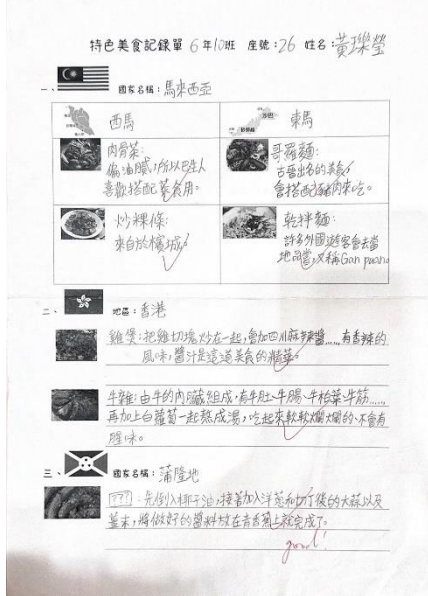 特色美食記錄單 6年10班 座號:26 姓名:黃瓅瑩
一、 國家名稱:馬來西亞
西馬 東馬
肉骨茶:
偏油膩,所以巴生人
喜歡搭配菜食用。
哥羅麵:
古晉出名的美食,
會搭配豬肉來吃。
炒粿條:
來自於檳城。
乾拌麵:
許多外國遊客會去當
地品嘗,又稱Gan puan
二、 地區:香港
雞煲:把雞切塊炒在一起,會加四川麻辣醬……,有香辣的
風味,醬汁是這道美食的精華。
牛雜:由牛的內臟組成,有牛肚、牛腸、牛柏葉、牛筋……,
再加上白蘿蔔一起熬成湯,吃起來軟軟爛爛的、不會有
腥味。
三、 國家名稱:蒲隆地
???:先倒入椰子油,接著加入洋蔥和切丁後的大蒜以及
薑末,將做好的醬料放在青香蕉上就完成了。
good!